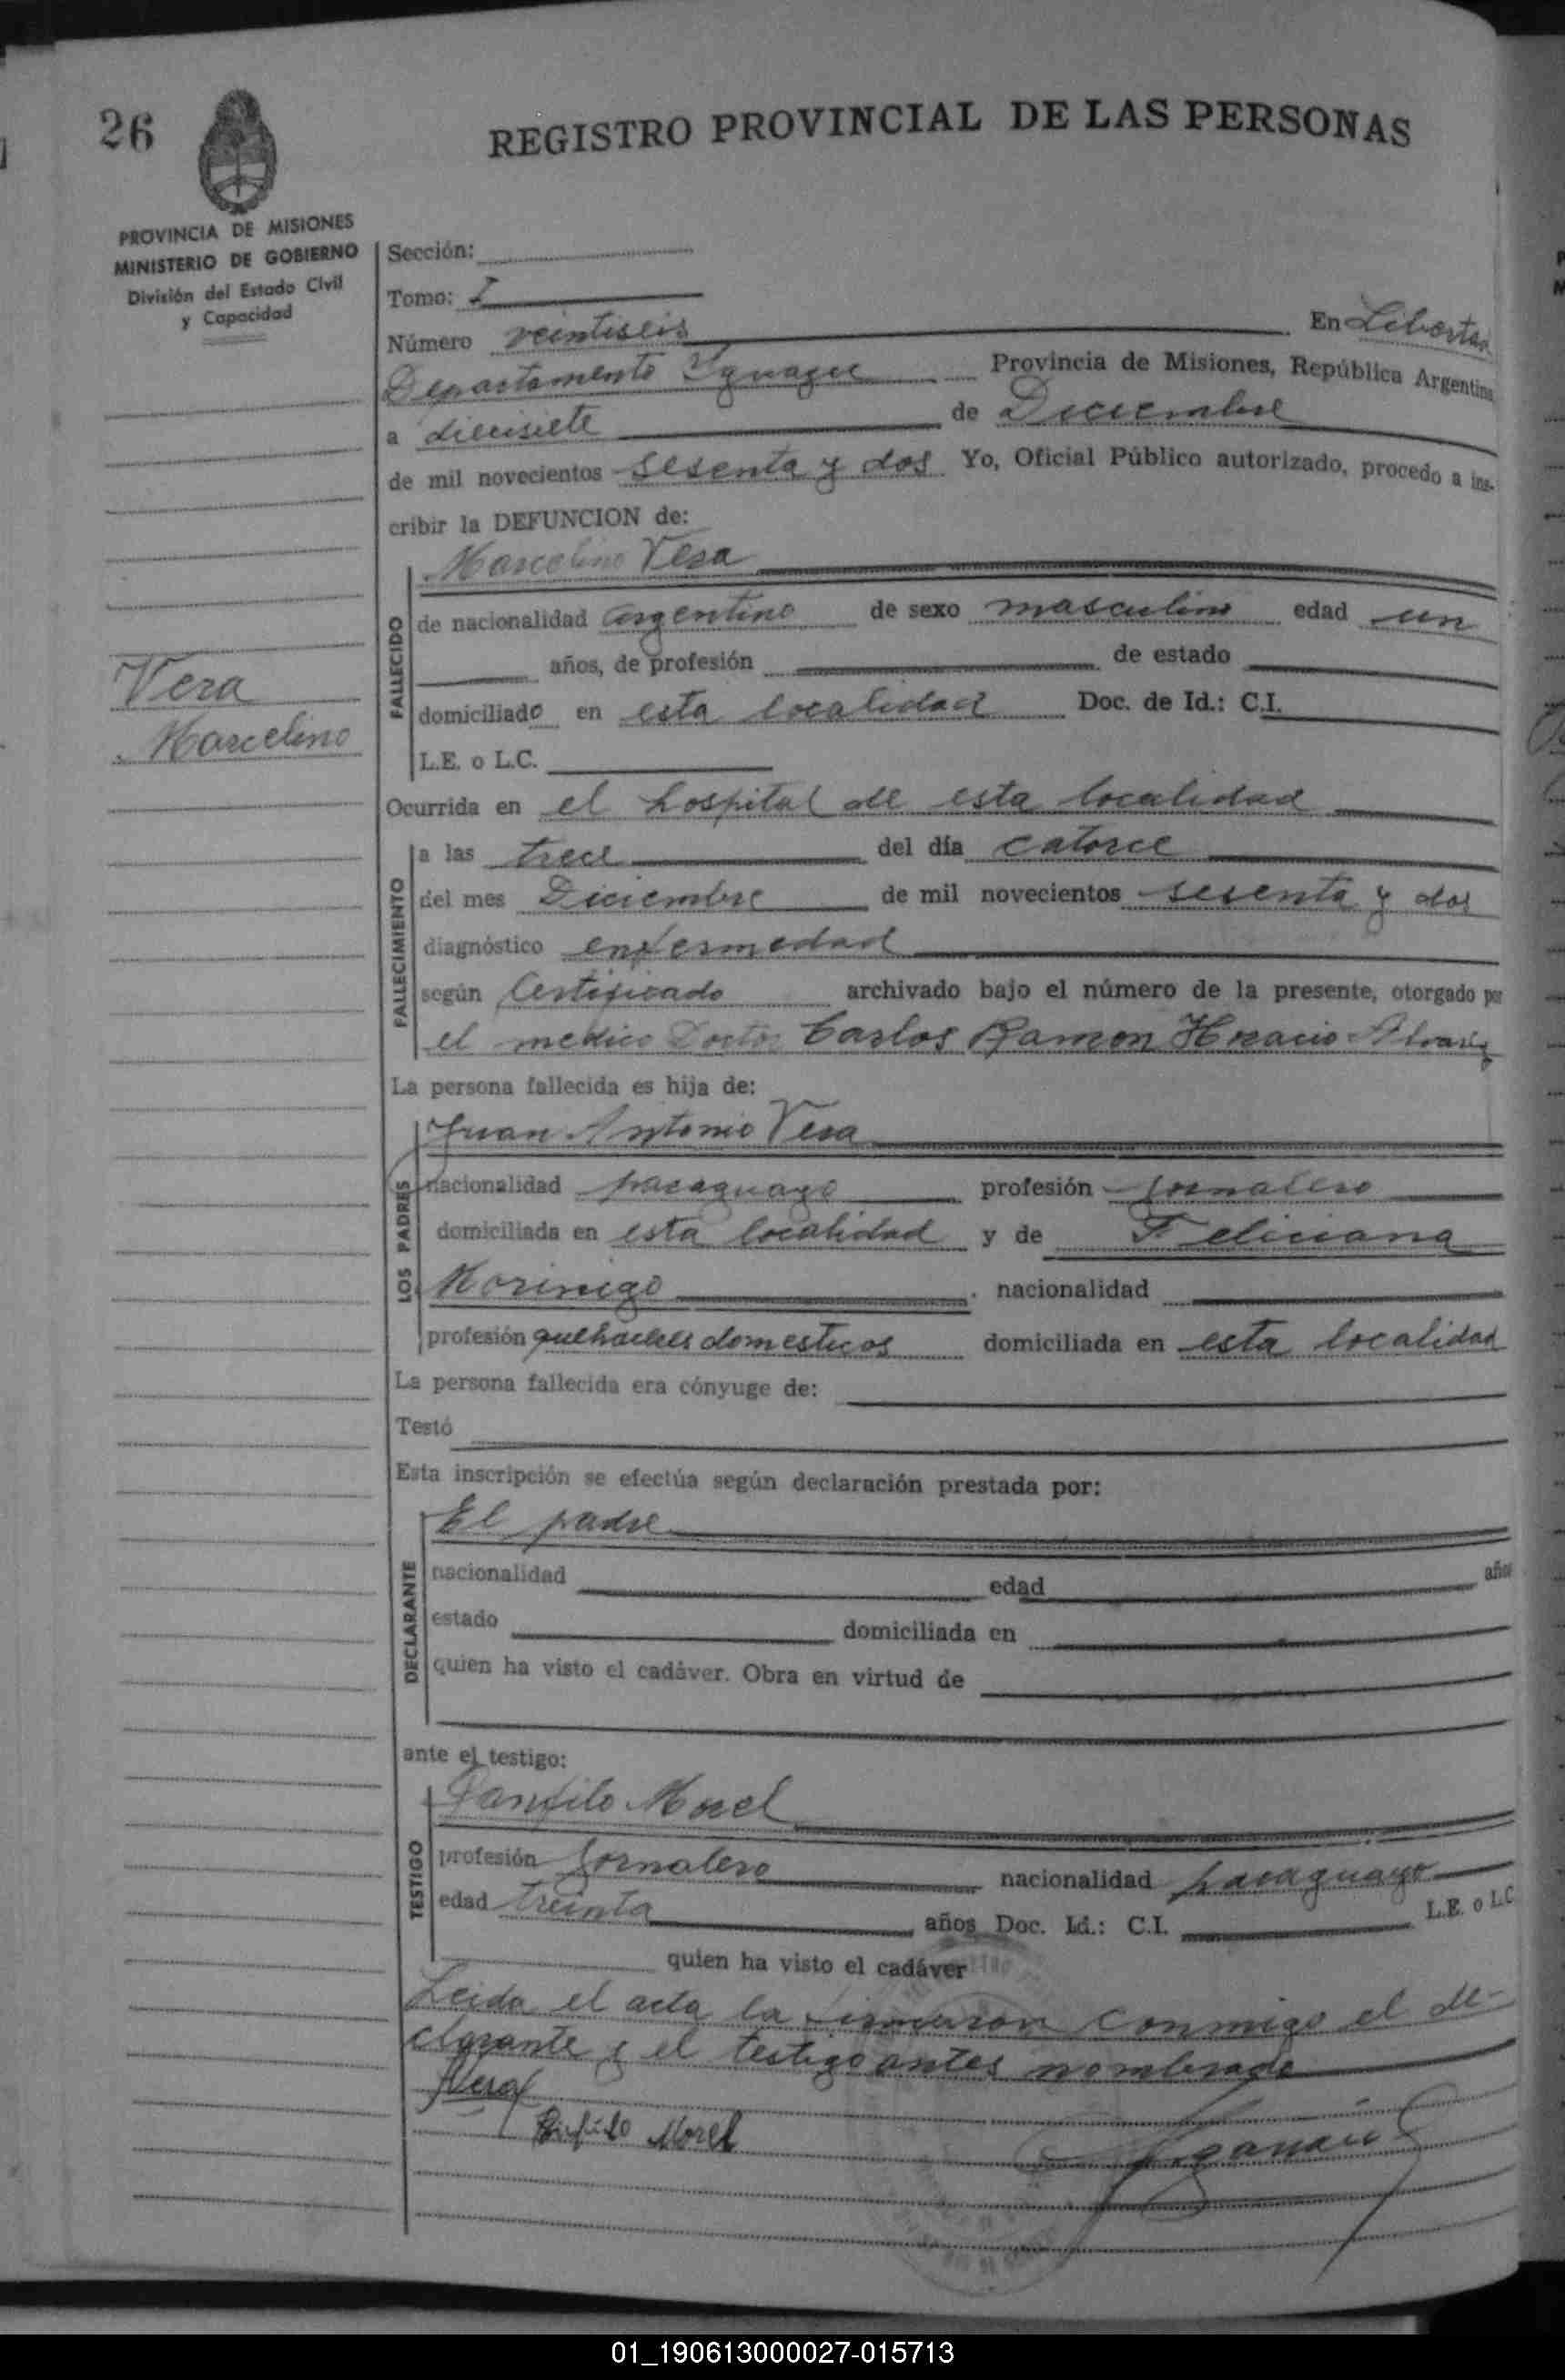 26
REGISTRO PROVINCIAL DE LAS PERSONAS
PROVINCIA DE MISIONES
MINISTERIO DE GOBIERNO
División del Estado Civil
y Capacidad
Vera
Marcelino
Sección:
Tomo: I
Número veintiseis En Libertad
Departamento Iguazu Provincia de Misiones, República Argentina
a diecisiete de Diciembre
de mil novecientos sesenta y dos Yo, Oficial Público autorizado, procedo a ins-
cribir la DEFUNCION de:
FALLECIDO
Marcelino Vera
de nacionalidad argentino de sexo masculino edad un
años, de profesión de estado
domiciliado en esta localidad Doc. de Id.: C.I.
L.E. o L.C.
Ocurrida en el hospital de esta localidad
FALLECIMIENTO
a las trece del día catorce
del mes Diciembre de mil novecientos sesenta y dos
diagnóstico enfermedad
según Certificado archivado bajo el número de la presente, otorgado por
el medico Doctor Carlos Ramon Horacio Alvarez
La persona fallecida es hija de:
LOS PADRES
Juan Antonio Vera
nacionalidad paraguayo profesión jornalero
domiciliada en esta localidad y de Feliciana
Morinigo nacionalidad
profesión quehaceres domesticos domiciliada en esta localidad
La persona fallecida era cónyuge de:
Testó
Esta inscripción se efectúa según declaración prestada por:
DECLARANTE
El padre
nacionalidad edad años
estado domiciliada en
quien ha visto el cadáver. Obra en virtud de
ante el testigo:
TESTIGO
Panfilo Morel
profesión jornalero nacionalidad paraguayo
edad treinta años Doc. Id.: C.I. L.E. o L.C
quien ha visto el cadáver
Leida el acta la firmaron conmigo el de-
clarante y el testigo antes nombrado
JVera
Panfilo Morel
01_190613000027-015713